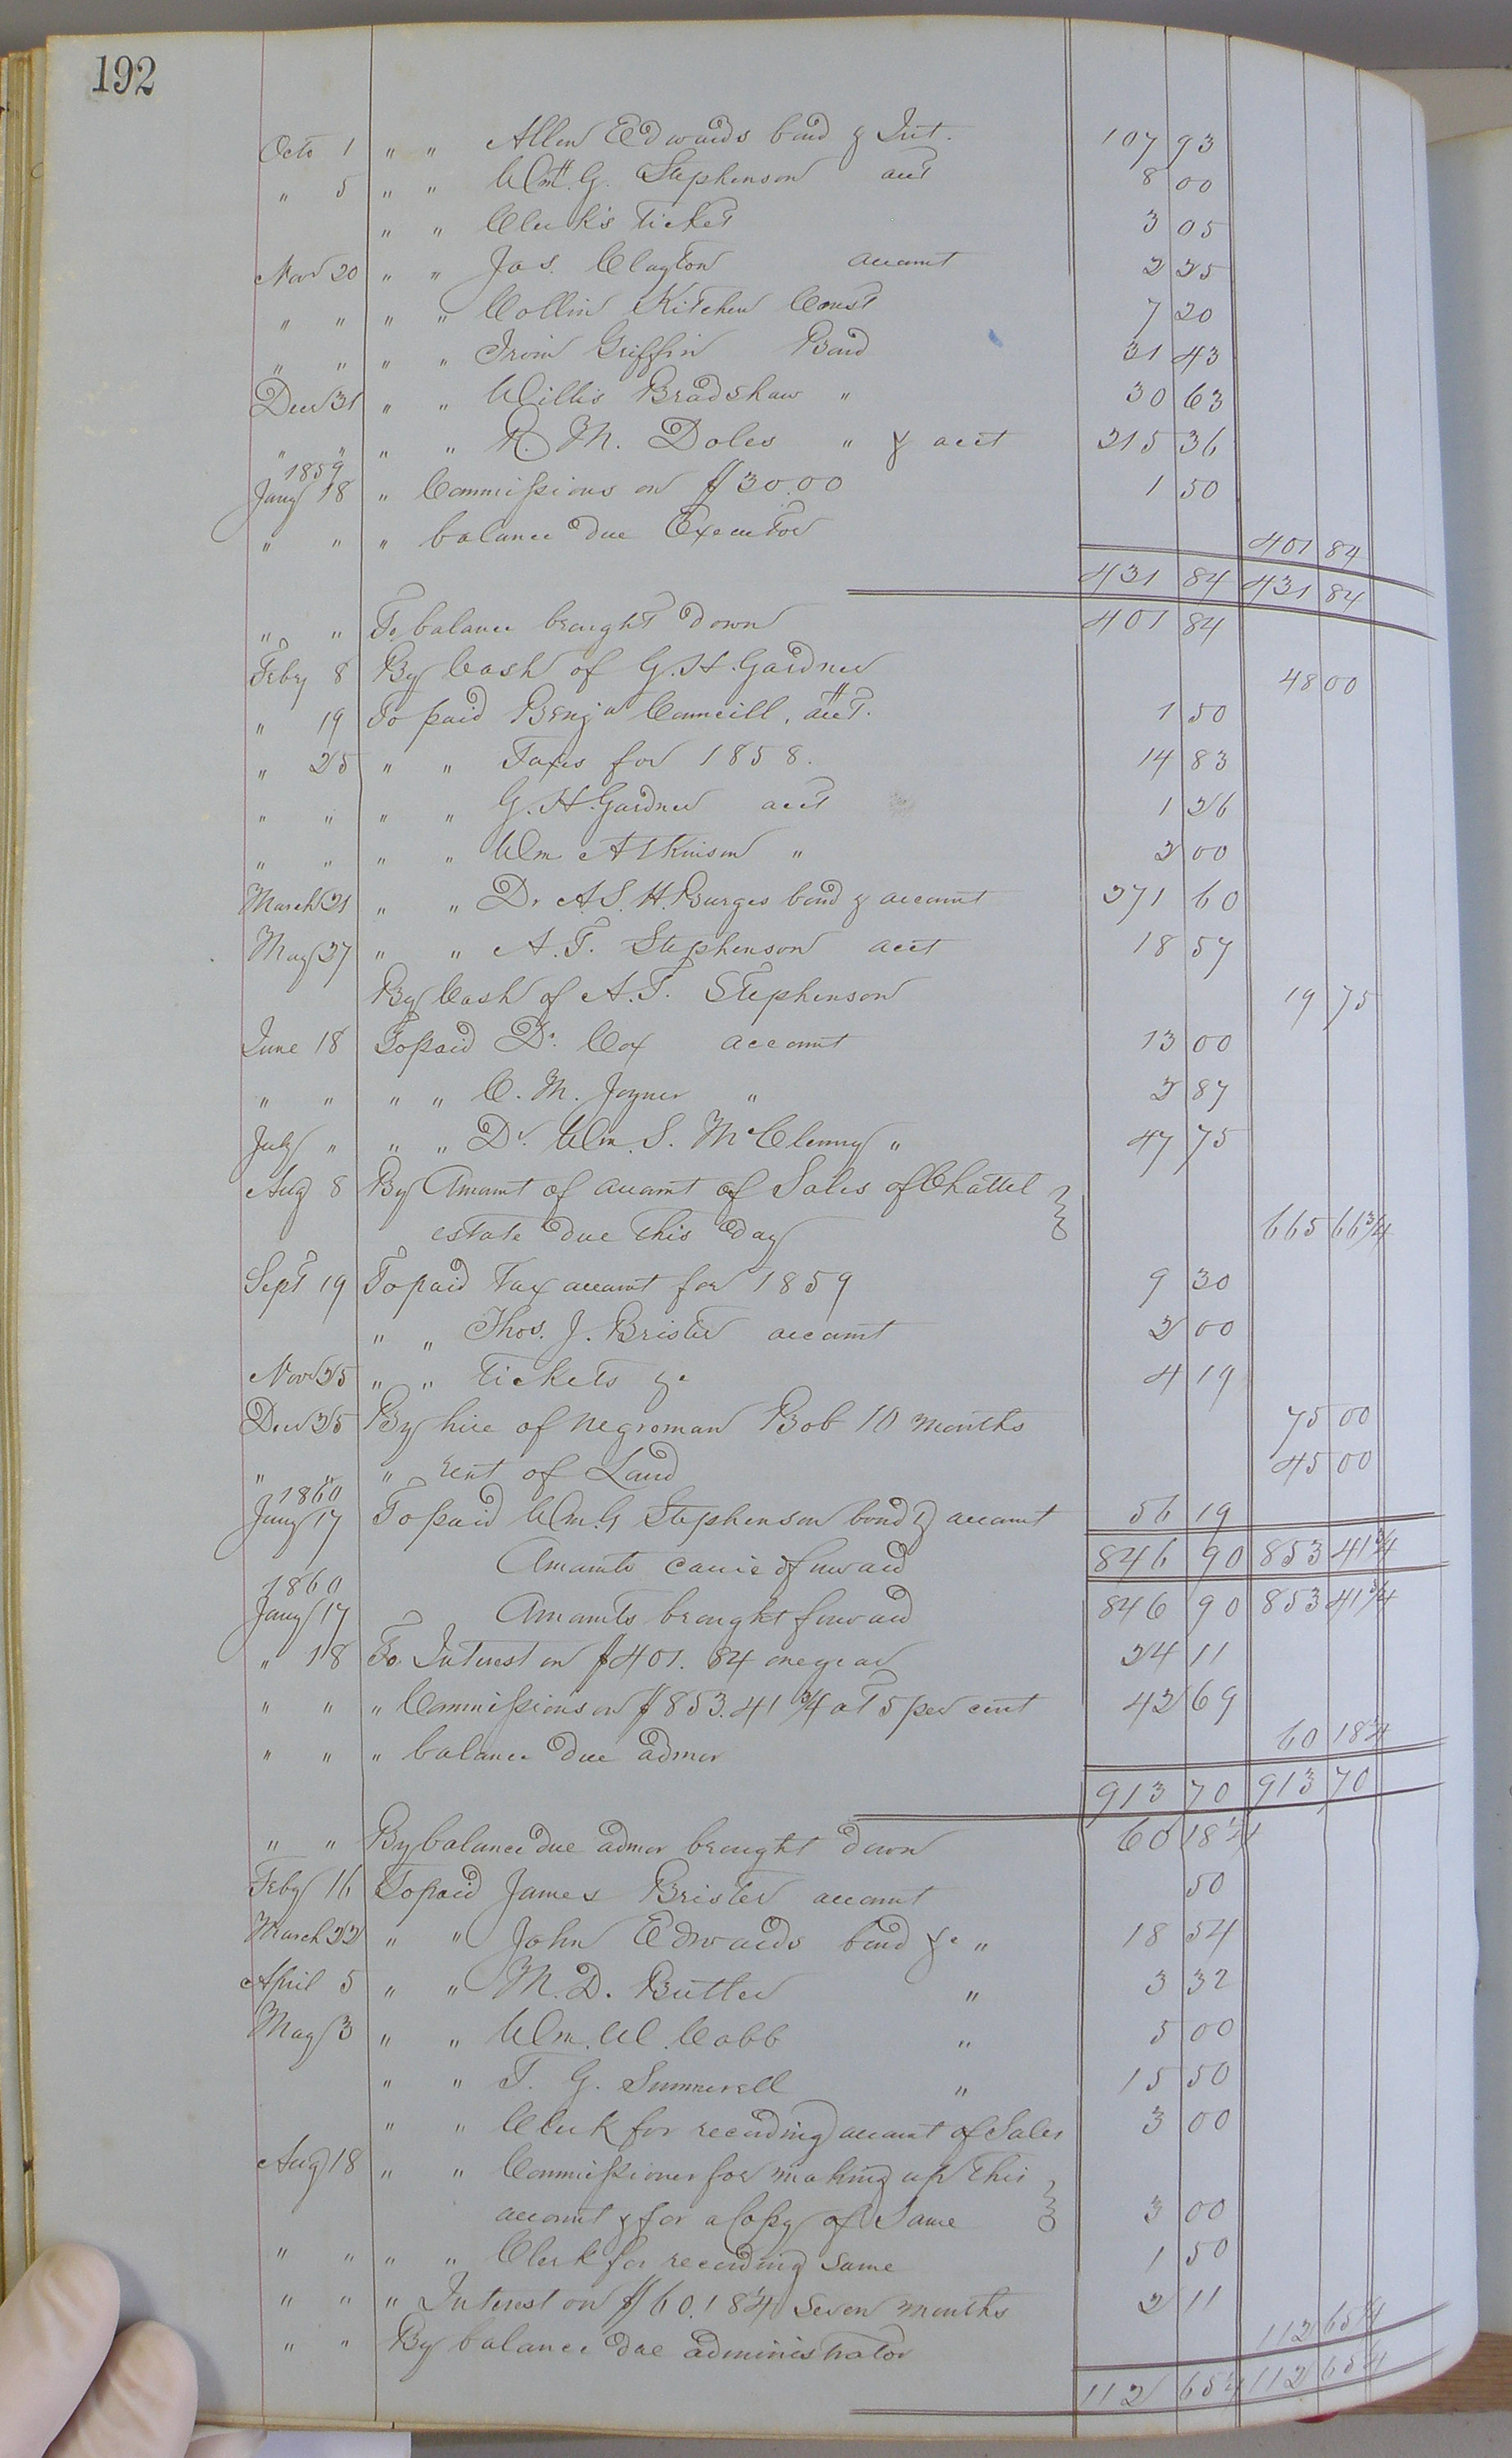 192
Octo 1 " " Allen Edwards bond & Int. 107 93
" 5 " " Wm. G. Stephenson acct 8 00
" " Clerk's ticket 3 05
Nov 20 " " Jas. Clayton account 2 25
" " " " Collin Kitchen Const 7 20
" " " " Irvin Griffin Bond 31 43
Decr 31 " " Willis Bradshaw " 30 63
" " " " R. M. Doles " & acct 215 36
1859
Jany 18 " Commissions on $30.00 1 50
" " " balance due Executor 401 84
431 84 431 84
" " To balance brought down 401 84
Feby 8 By Cash of G. H. Gardner 48 00
" 19 To paid Benja Councill, acct. 1 50
" 25 " " Taxes for 1858. 14 83
" " " " G. H. Gardner acct 1 26
" " " " Wm Atkinson " 2 00
March 21 " " Dr A. S. H. Burges bond & account 271 60
May 27 " " A. T. Stephenson acct 18 57
By Cash of A. T. Stephenson 19 75
June 18 To paid Dr. Cox account 13 00
" " " " C. M. Joyner " 2 87
July " " " Dr. Wm. S. McClenny " 47 75
Aug 8 By Amount of account of Sales of Chattel
estate due this day 665 66 3/4
Sept 19 To paid Tax account for 1859 9 30
" " Thos. J. Brister account 2 00
Nov 25 " " tickets &c 4 19
Decr 25 By hire of negroman Bob 10 months 75 00
" " " rent of Land 45 00
1860
Jany 17 To paid Wm. G Stephenson bond & account 56 19
Amounts carried forward 846 90 853 41 3/4
1860
Jany 17 Amounts brought forward 846 90 853 41 3/4
" 18 To Interest on $401. 84 one year 24 11
" " " Commissions on $853.41 3/4 at 5 per cent 42 69
" " " balance due admor 60 18 1/4
913 70 913 70
" " By balance due admor brought down 60 18 1/4
Feby 16 To paid James Brister account 50
March 22 " " John Edwards bond &c " 18 54
April 5 " " M. D. Butler " 3 32
May 3 " " Wm. W. Cobb " 5 00
" " T. G. Summerell " 15 50
" " Clerk for recording account of Sales 3 00
Aug 18 " " Commissioner for making up this
account & for a Copy of Same 3 00
" " " " Clerk for recording same 1 50
" " " Interest on $60.18 1/4 seven months 2 11
" " By balance due administrator 112 65 1/4
112 65 1/4 112 65 1/4